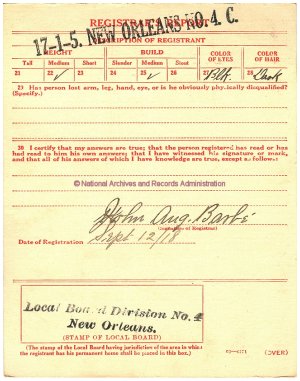 REGISTRAR'S REPORT
17-1-5. NEW ORLEANS NO. 4. C.
DESCRIPTION OF REGISTRANT
HEIGHT BUILD COLOR OF EYES COLOR OF HAIR
Tall Medium Short Slender Medium Stout
21 22 ✓ 23 24 25 ✓ 26 27 Blk. 28 Dark
29 Has person lost arm, leg, hand, eye, or is he obviously physically disqualified?
(Specify.)
30 I certify that my answers are true; that the person registered has read or has
had read to him his own answers; that I have witnessed his signature or mark,
and that all of his answers of which I have knowledge are true, except as follows:
© National Archives and Records Administration
John Aug. Barbé
(Signature of Registrar)
Date of Registration Sept 12/18
Local Board Division No. 4
New Orleans.
(STAMP OF LOCAL BOARD)
(The stamp of the Local Board having jurisdiction of the area in which
the registrant has his permanent home shall be placed in this box.)
(OVER)